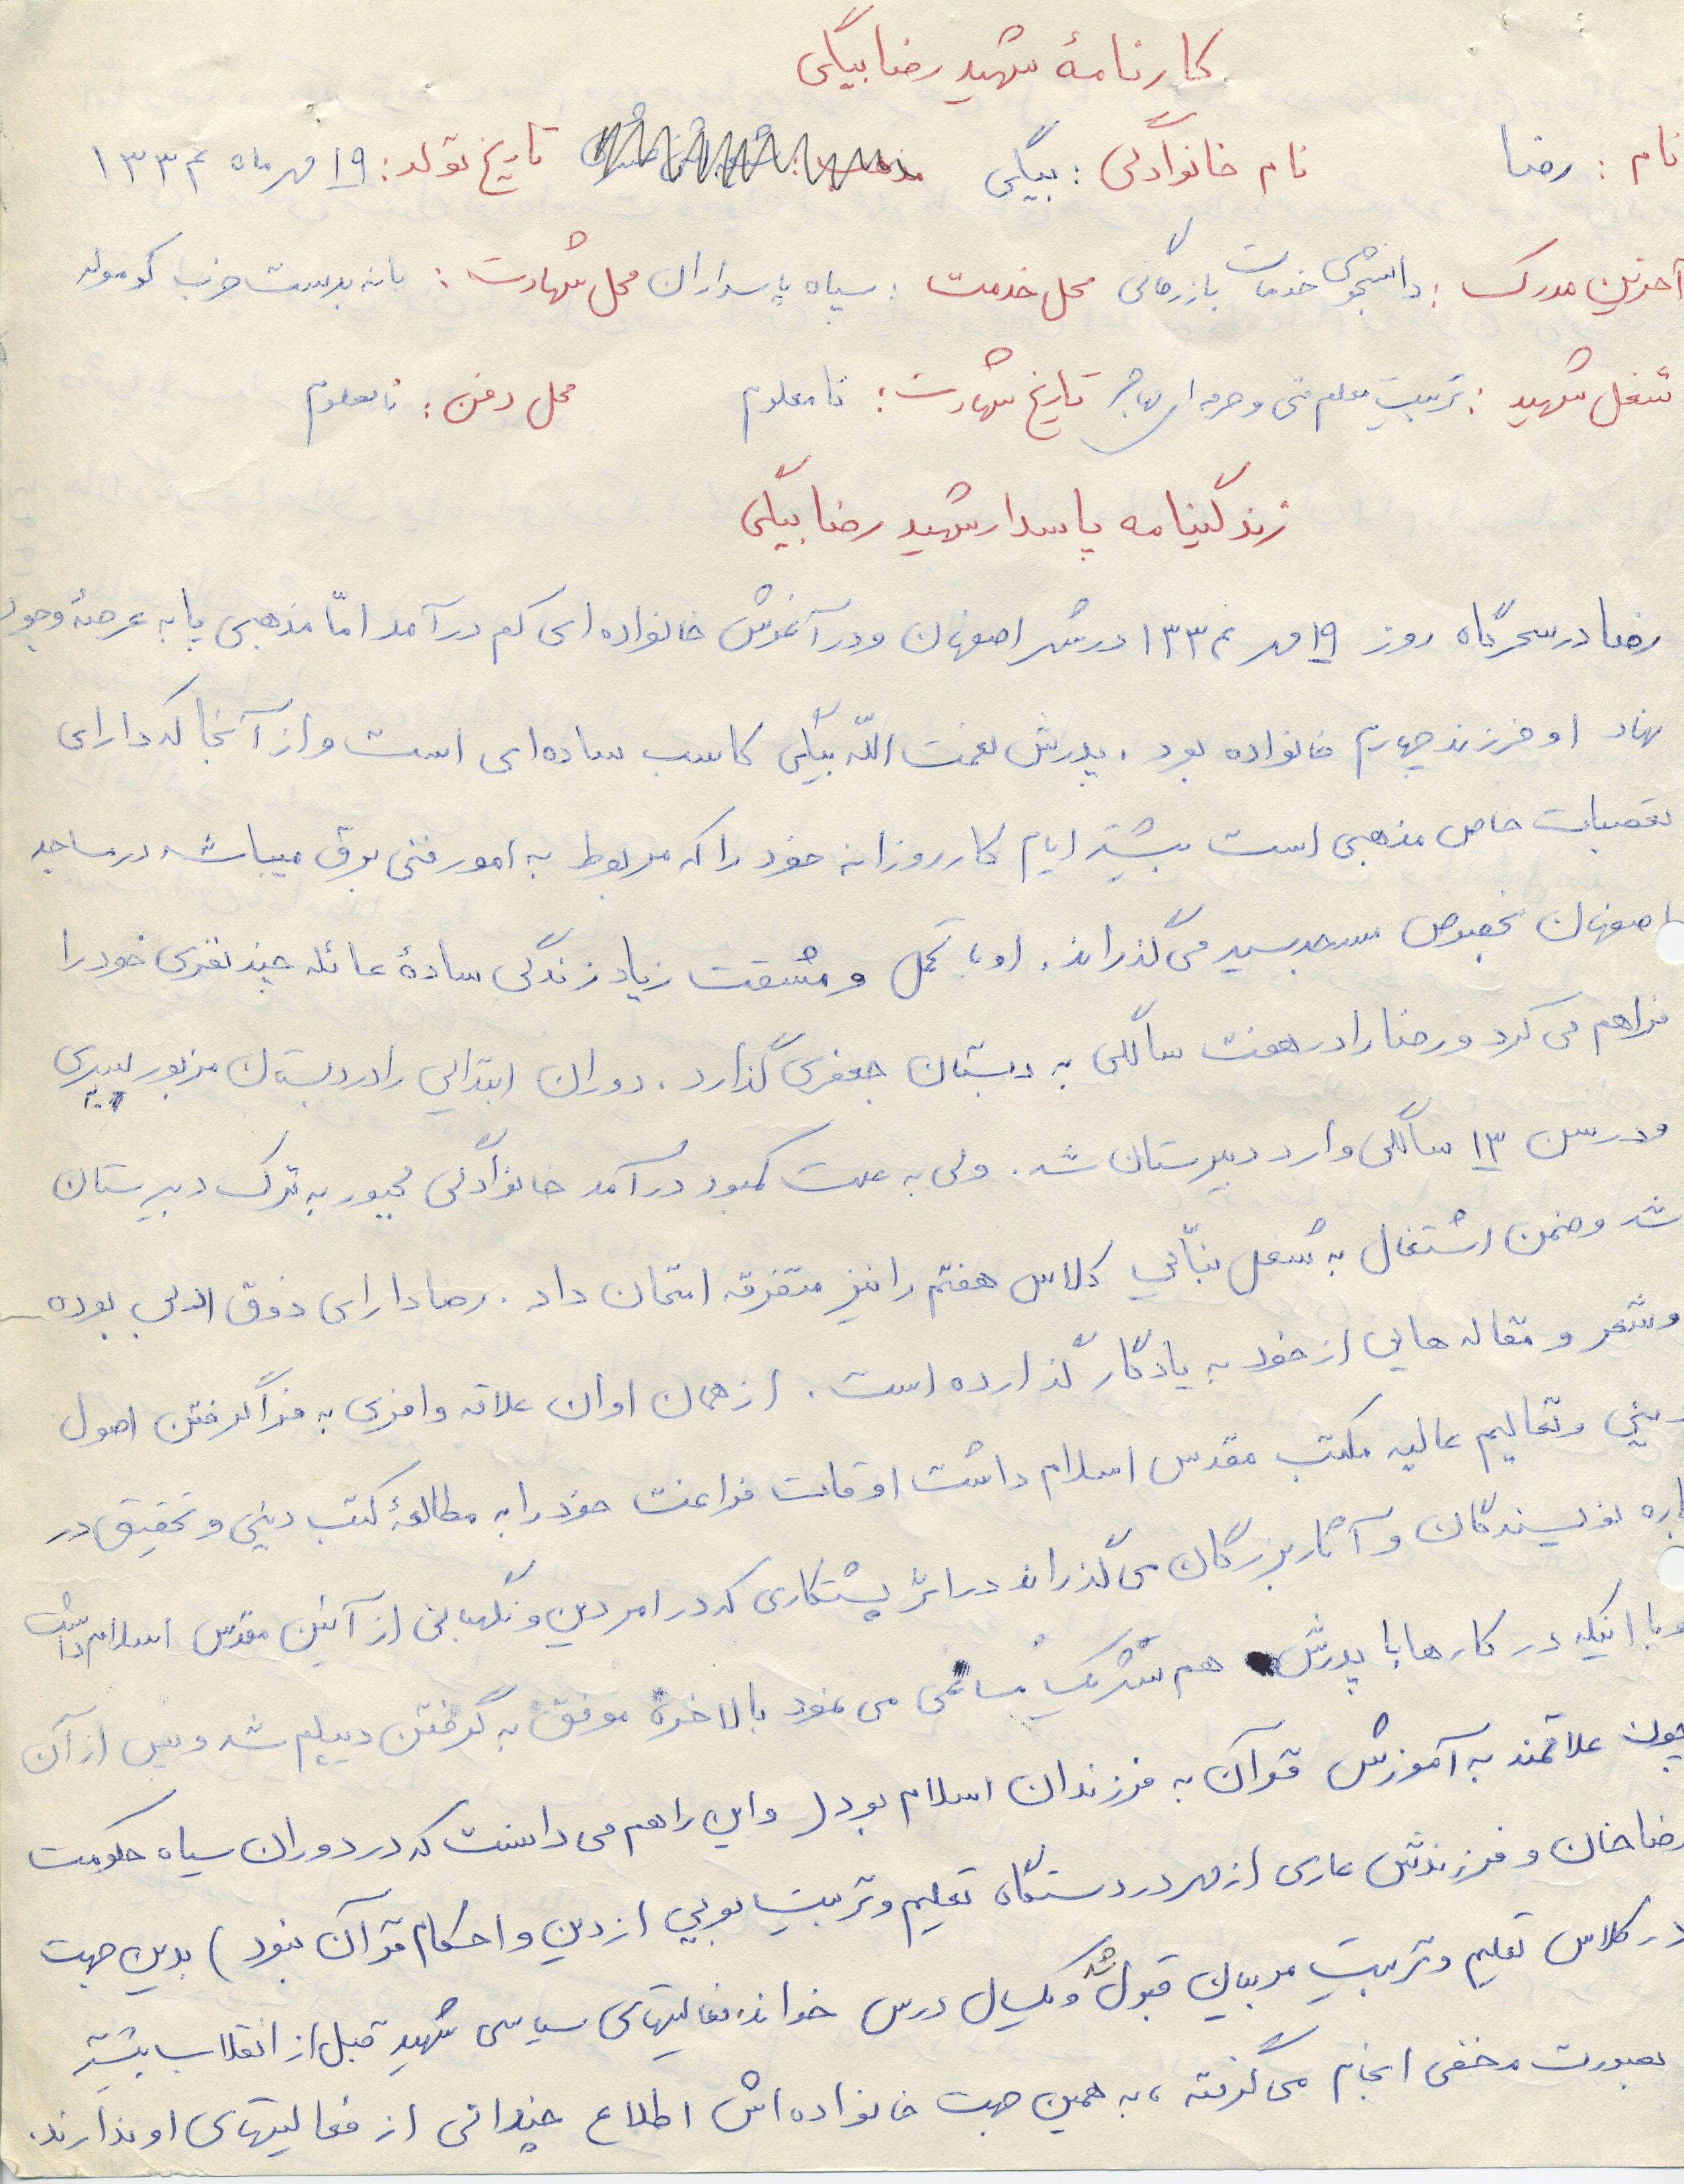 کارنامهٔ شهید رضا بیگی
نام : رضا نام خانوادگی : بیگی تاریخ تولد : ۱۹ مهر ماه ۱۳۳۴
آخرین مدرک : دانشجوی خدمات بازرگانی محل خدمت : سپاه پاسداران محل شهادت : بانه بدست حزب کومله
شغل شهید : تربیت معلم فنی و حرفه ای تاریخ شهادت : نامعلوم محل دفن : نامعلوم
زندگینامه پاسدار شهید رضا بیگی
رضا در سحرگاه روز ۱۹ مهر ۱۳۳۴ در شهر اصفهان و در آغوش خانواده ای کم درآمد امّا مذهبی پا به عرصهٔ وجود
نهاد او فرزند چهارم خانواده بود . پدرش نعمت اللّه بیگی کاسب ساده ای است و از آنجا که دارای
تعصبات خاص مذهبی است بیشتر ایام کار روزانه خود را که مربوط به امور فنی برق میباشد در مساجد
اصفهان بخصوص مسجد سید می گذراند . او با تحمل و مشقت زیاد زندگی سادهٔ عائله چند نفری خود را
فراهم می کرد و رضا را در هفت سالگی به دبستان جعفری گذارد . دوران ابتدایی را در دبستان مزبور سپری
و در سن ۱۳ سالگی وارد دبیرستان شد . ولی به علت کمبود درآمد خانوادگی مجبور به ترک دبیرستان
شد و ضمن اشتغال به شغل بنّائی کلاس هفتم را نیز متفرقه امتحان داد . رضا دارای ذوق ادبی بوده
و شعر و مقاله هایی از خود به یادگار گذارده است . از همان اوان علاقه وافری به فراگرفتن اصول
دینی و تعالیم عالیه مکتب مقدس اسلام داشت اوقات فراغت خود را به مطالعهٔ کتب دینی و تحقیق در
باره نویسندگان و آثار بزرگان می گذراند در اثر پشتکاری که در امر دین و نگهبانی از آئین مقدس اسلام داشت
و با اینکه در کارها با پدرش هم شریک مساعی می نمود بالاخره موفق به گرفتن دیپلم شد و پس از آن
چون علاقمند به آموزش قرآن به فرزندان اسلام بود ( و این را هم می دانست که در دوران سیاه حکومت
رضاخان و فرزندش عاری از مهر در دستگاه تعلیم و تربیت بویی از دین و احکام قرآن نبود ) بدین جهت
در کلاس تعلیم و تربیت مربیان قبول شد و یکسال درس خواند فعالیتهای سیاسی شهید قبل از انقلاب بیشتر
بصورت مخفی انجام می گرفته ، به همین جهت خانواده اش اطلاع چندانی از فعالیتهای او ندارند .